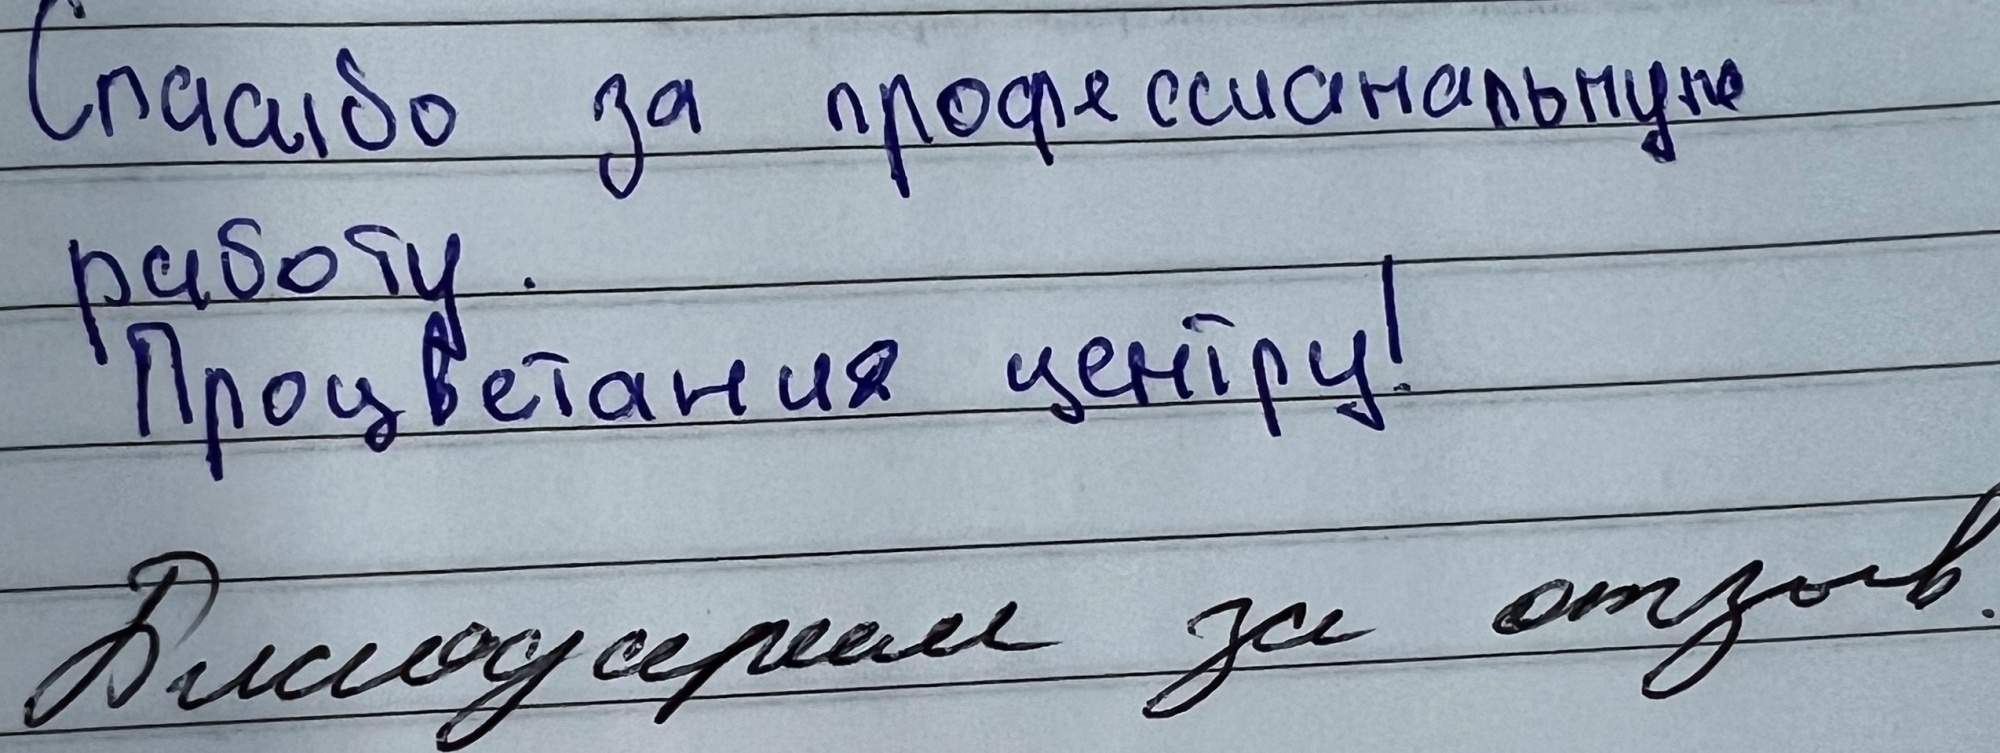 Спасибо за профессианальную
работу.
Процветания центру!
Благодарим за отзыв.